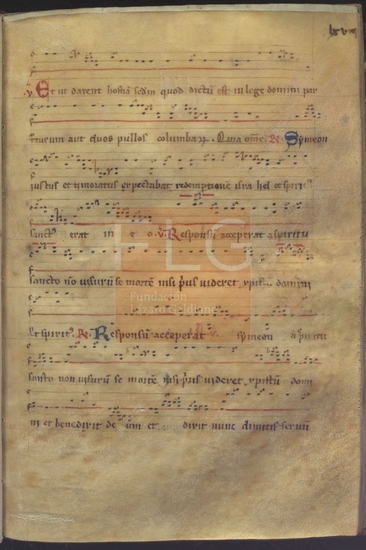 Et ut darent hostiā sedm quod dictū est in lege domini par
turum aut duos pullos columbaꝝ. R. Symeon
iustus et timoratus expectabat redemptionē isra hel et spirit
sanct erat in e o. V. Responsū acceperat a spiritu
sancto non visurū se mortē nisi p̄us videret domini
Et spirit. R. Responsū acceperat symeon a spiritu
sancto non visurum se mortē nisi p̄us videret domi
ni et benedixit de um et dixit nunc dimittis seruū
FLG
Fundación
Lázaro Galdiano